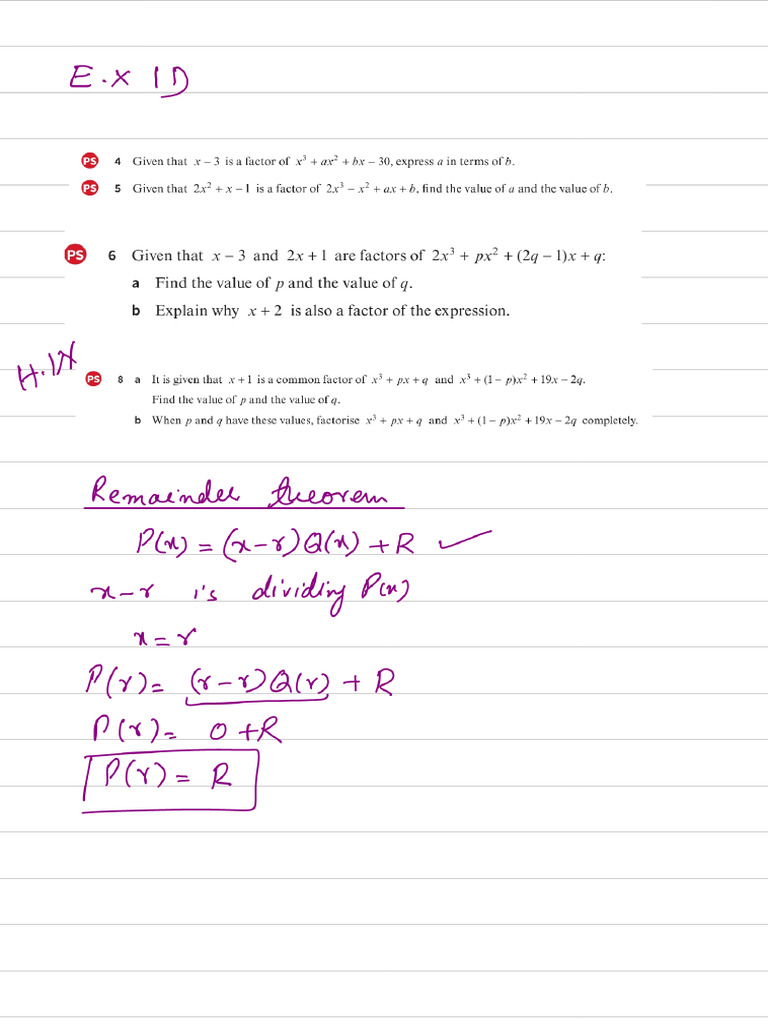 E.x 1D
PS 4 Given that x − 3 is a factor of x³ + ax² + bx − 30, express a in terms of b.
PS 5 Given that 2x² + x − 1 is a factor of 2x³ − x² + ax + b, find the value of a and the value of b.
PS 6 Given that x − 3 and 2x + 1 are factors of 2x³ + px² + (2q − 1)x + q:
a Find the value of p and the value of q.
b Explain why x + 2 is also a factor of the expression.
PS 8 a It is given that x + 1 is a common factor of x³ + px + q and x³ + (1 − p)x² + 19x − 2q.
Find the value of p and the value of q.
b When p and q have these values, factorise x³ + px + q and x³ + (1 − p)x² + 19x − 2q completely.
Remainder theorem
P(x) = (x−r)Q(x) + R ✓
x−r is dividing P(x)
x = r
P(r) = (r−r)Q(r) + R
P(r) = 0 + R
P(r) = R